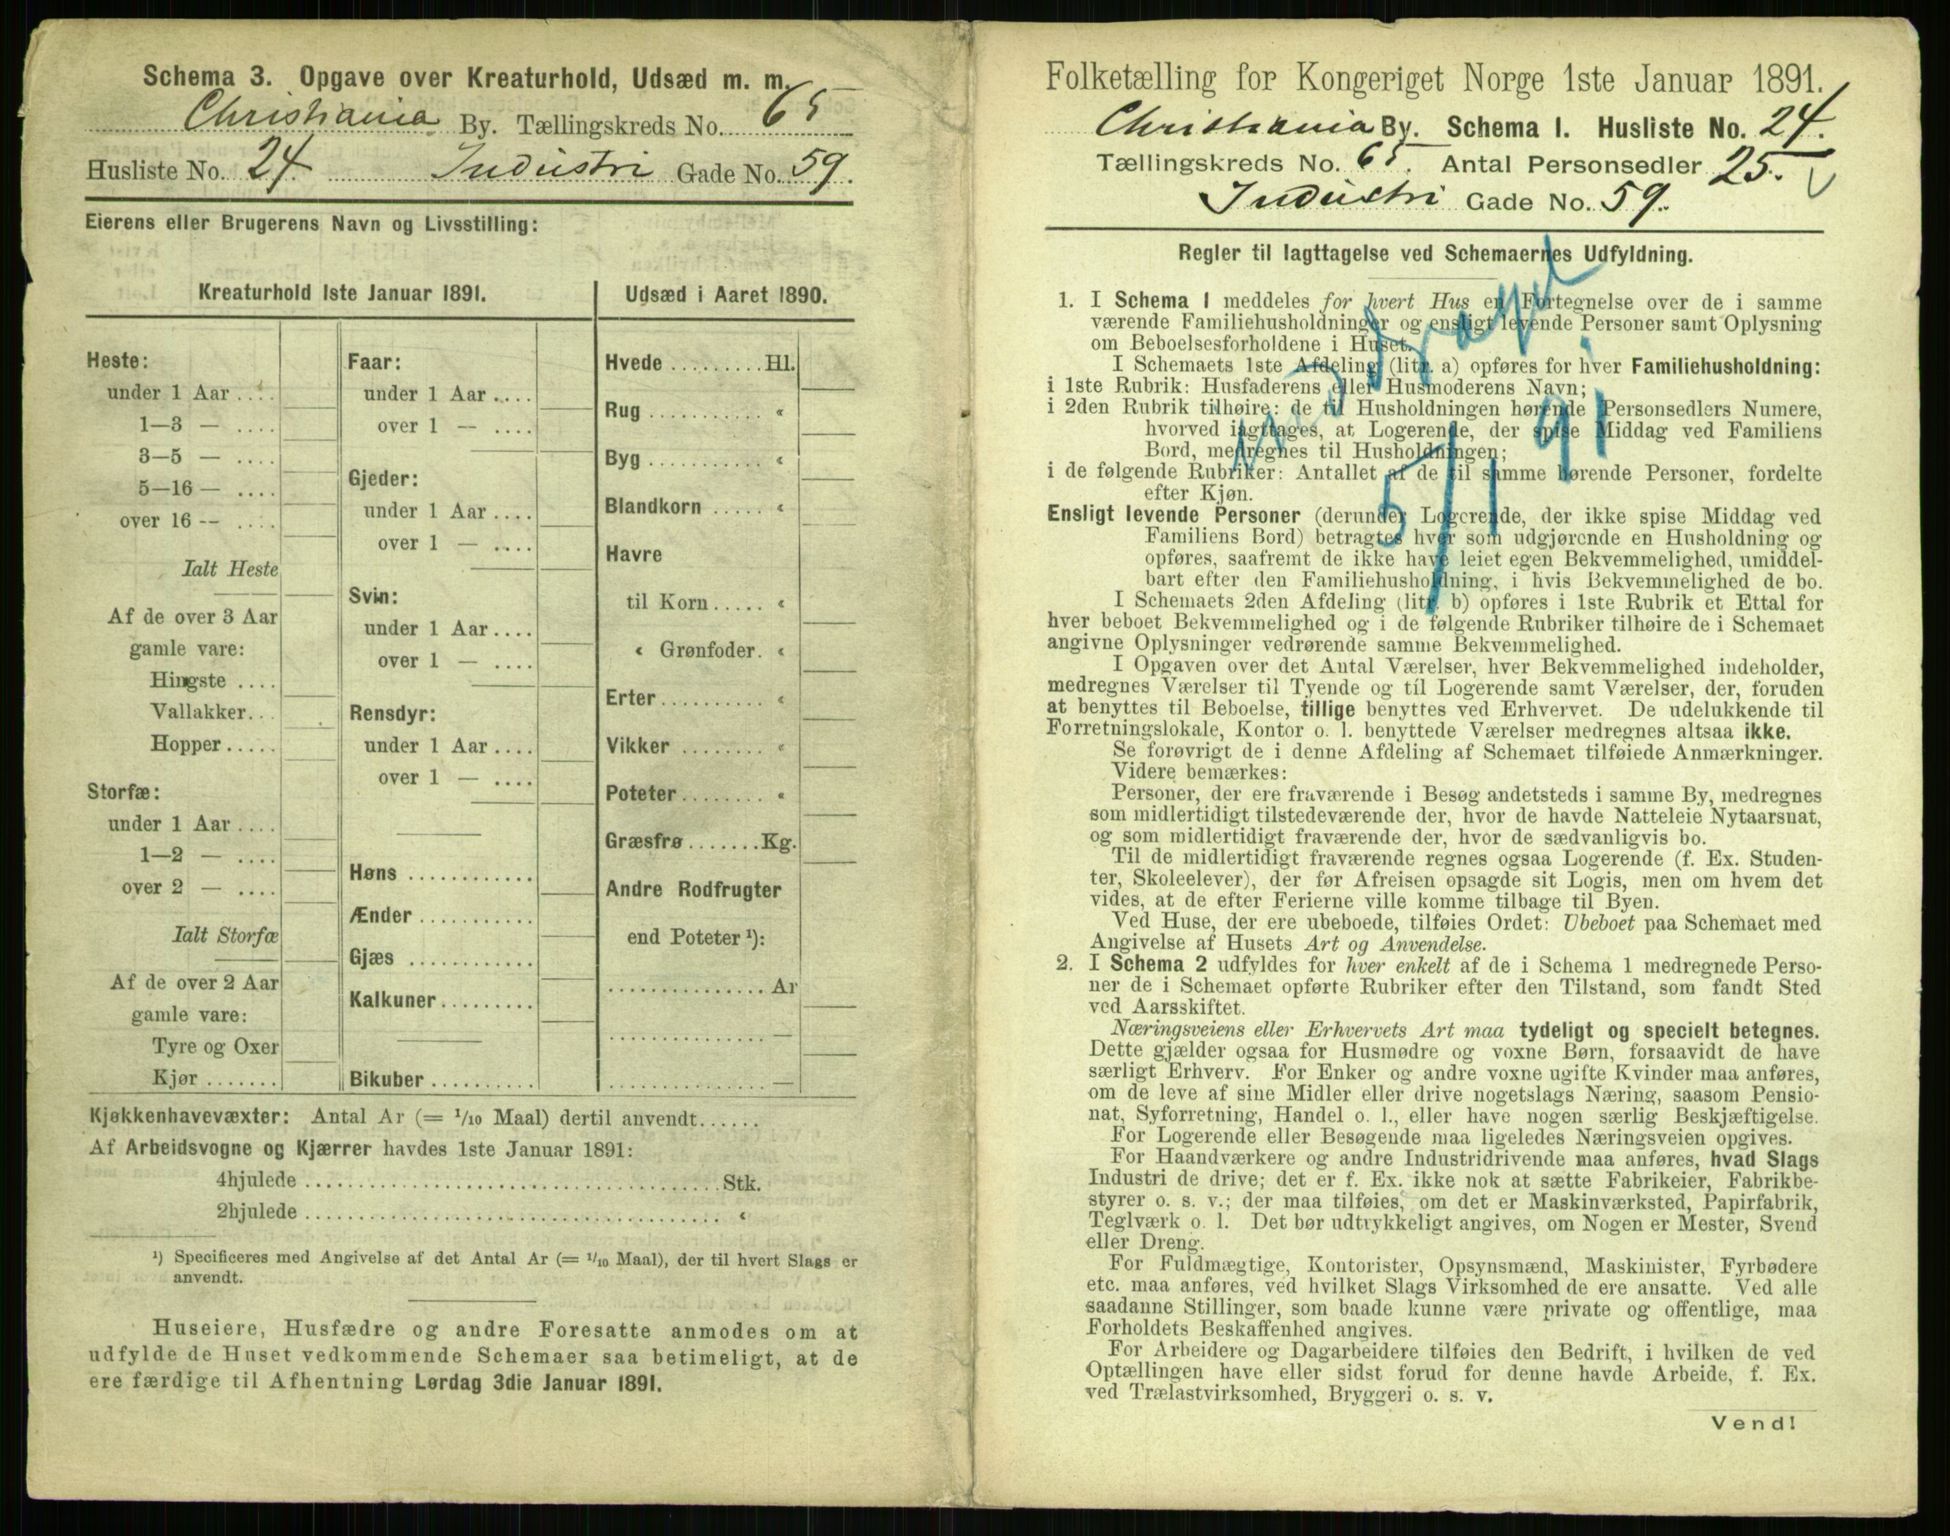 Schema 3. Opgave over Kreaturhold, Udsæd m. m.
Christiania By. Tællingskreds No. 65
Husliste No. 24. Industri Gade No. 59.
Eierens eller Brugerens Navn og Livsstilling:
Kreaturhold 1ste Januar 1891.
Heste:
under 1 Aar ....
1—3 — ....
3—5 — ....
5—16 — ....
over 16 -- ....
Ialt Heste
Af de over 3 Aar
gamle vare:
Hingste ....
Vallakker...
Hopper.....
Storfæ:
under 1 Aar ....
1—2 — ....
over 2 — ....
Ialt Storfæ
Af de over 2 Aar
gamle vare:
Tyre og Oxer
Kjør .......
Faar:
under 1 Aar ....
over 1 — ....
Gjeder:
under 1 Aar ....
over 1 — ....
Svin:
under 1 Aar ....
over 1 — ....
Rensdyr:
under 1 Aar ....
over 1 — ....
Høns ............
Ænder ...........
Gjæs ............
Kalkuner.........
Bikuber ..........
Udsæd i Aaret 1890.
Hvede .........Hl.
Rug ........... «
Byg ........... «
Blandkorn ..... «
Havre
til Korn..... «
« Grønfoder. «
Erter .......... «
Vikker ........ «
Poteter ........ «
Græsfrø .......Kg.
Andre Rodfrugter
end Poteter ¹):
............... Ar
............... —
............... —
Kjøkkenhavevæxter: Antal Ar (= 1/10 Maal) dertil anvendt......
Af Arbeidsvogne og Kjærrer havdes 1ste Januar 1891:
4hjulede ........................................Stk.
2hjulede ........................................ «
¹) Specificeres med Angivelse af det Antal Ar (= 1/10 Maal), der til hvert Slags er
anvendt.
Huseiere, Husfædre og andre Foresatte anmodes om at
udfylde de Huset vedkommende Schemaer saa betimeligt, at de
ere færdige til Afhentning Lørdag 3die Januar 1891.
Folketælling for Kongeriget Norge 1ste Januar 1891.
Christiania By. Schema 1. Husliste No. 24.
Tællingskreds No. 65. Antal Personsedler 25.
Industri Gade No. 59.
Regler til Iagttagelse ved Schemaernes Udfyldning.
1. I Schema 1 meddeles for hvert Hus en Fortegnelse over de i samme
værende Familiehusholdninger og ensligt levende Personer samt Oplysning
om Beboelsesforholdene i Huset.
I Schemaets 1ste Afdeling (litr. a) opføres for hver Familiehusholdning:
i 1ste Rubrik: Husfaderens eller Husmoderens Navn;
i 2den Rubrik tilhøire: de til Husholdningen hørende Personsedlers Numere,
hvorved iagttages, at Logerende, der spise Middag ved Familiens
Bord, medregnes til Husholdningen;
i de følgende Rubriker: Antallet af de til samme hørende Personer, fordelte
efter Kjøn.
5/1 91
Ensligt levende Personer (derunder Logerende, der ikke spise Middag ved
Familiens Bord) betragtes hver som udgjørende en Husholdning og
opføres, saafremt de ikke have leiet egen Bekvemmelighed, umiddel-
bart efter den Familiehusholdning, i hvis Bekvemmelighed de bo.
I Schemaets 2den Afdeling (litr. b) opføres i 1ste Rubrik et Ettal for
hver beboet Bekvemmelighed og i de følgende Rubriker tilhøire de i Schemaet
angivne Oplysninger vedrørende samme Bekvemmelighed.
I Opgaven over det Antal Værelser, hver Bekvemmelighed indeholder,
medregnes Værelser til Tyende og til Logerende samt Værelser, der, foruden
at benyttes til Beboelse, tillige benyttes ved Erhvervet. De udelukkende til
Forretningslokale, Kontor o. l. benyttede Værelser medregnes altsaa ikke.
Se forøvrigt de i denne Afdeling af Schemaet tilføiede Anmærkninger.
Videre bemærkes:
Personer, der ere fraværende i Besøg andetsteds i samme By, medregnes
som midlertidigt tilstedeværende der, hvor de havde Natteleie Nytaarsnat,
og som midlertidigt fraværende der, hvor de sædvanligvis bo.
Til de midlertidigt fraværende regnes ogsaa Logerende (f. Ex. Studen-
ter, Skoleelever), der før Afreisen opsagde sit Logis, men om hvem det
vides, at de efter Ferierne ville komme tilbage til Byen.
Ved Huse, der ere ubeboede, tilføies Ordet: Ubeboet paa Schemaet med
Angivelse af Husets Art og Anvendelse.
2. I Schema 2 udfyldes for hver enkelt af de i Schema 1 medregnede Perso-
ner de i Schemaet opførte Rubriker efter den Tilstand, som fandt Sted
ved Aarsskiftet.
Næringsveiens eller Erhvervets Art maa tydeligt og specielt betegnes.
Dette gjælder ogsaa for Husmødre og voxne Børn, forsaavidt de have
særligt Erhverv. For Enker og andre voxne ugifte Kvinder maa anføres,
om de leve af sine Midler eller drive nogetslags Næring, saasom Pensio-
nat, Syforretning, Handel o. l., eller have nogen særlig Beskjæftigelse.
For Logerende eller Besøgende maa ligeledes Næringsveien opgives.
For Haandværkere og andre Industridrivende maa anføres, hvad Slags
Industri de drive; det er f. Ex. ikke nok at sætte Fabrikeier, Fabrikbe-
styrer o. s. v.; der maa tilføies, om det er Maskinværksted, Papirfabrik,
Teglværk o. l. Det bør udtrykkeligt angives, om Nogen er Mester, Svend
eller Dreng.
For Fuldmægtige, Kontorister, Opsynsmænd, Maskinister, Fyrbødere
etc. maa anføres, ved hvilket Slags Virksomhed de ere ansatte. Ved alle
saadanne Stillinger, som baade kunne være private og offentlige, maa
Forholdets Beskaffenhed angives.
For Arbeidere og Dagarbeidere tilføies den Bedrift, i hvilken de ved
Optællingen have eller sidst forud for denne havde Arbeide, f. Ex.
ved Trælastvirksomhed, Bryggeri o. s. v.
Vend!